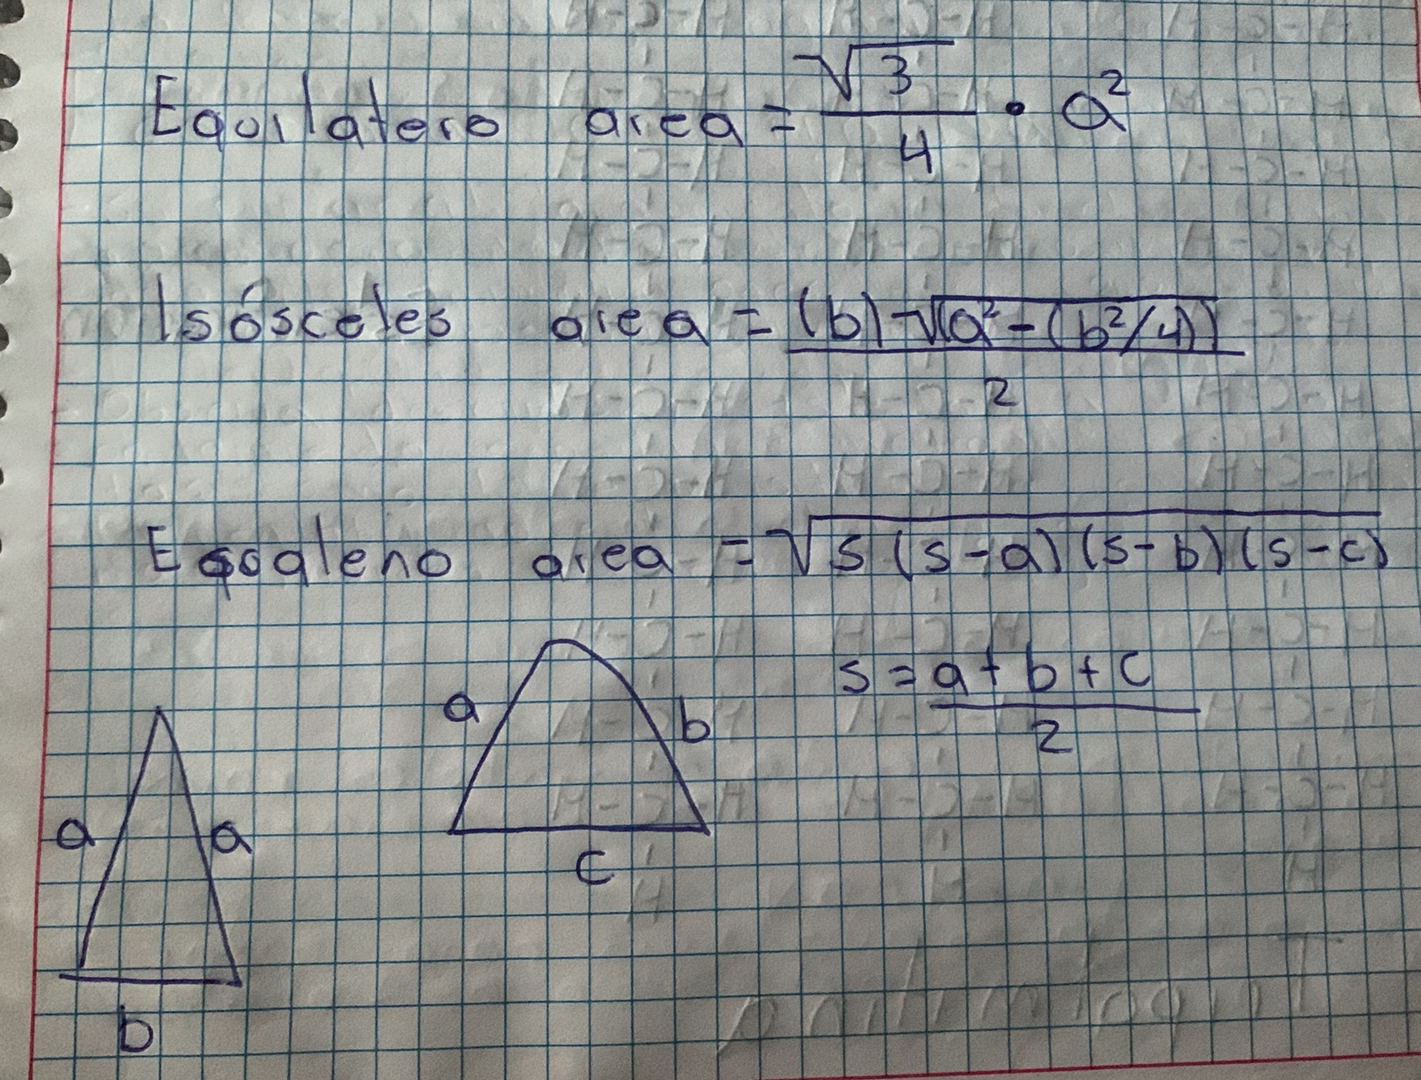 Equilatero area = √3/4 • a²
Isósceles area = (b) √(a² - (b²/4))/2
Escaleno area = √s (s-a) (s-b) (s-c)
s = a + b + c/2
a b
c
a a
b